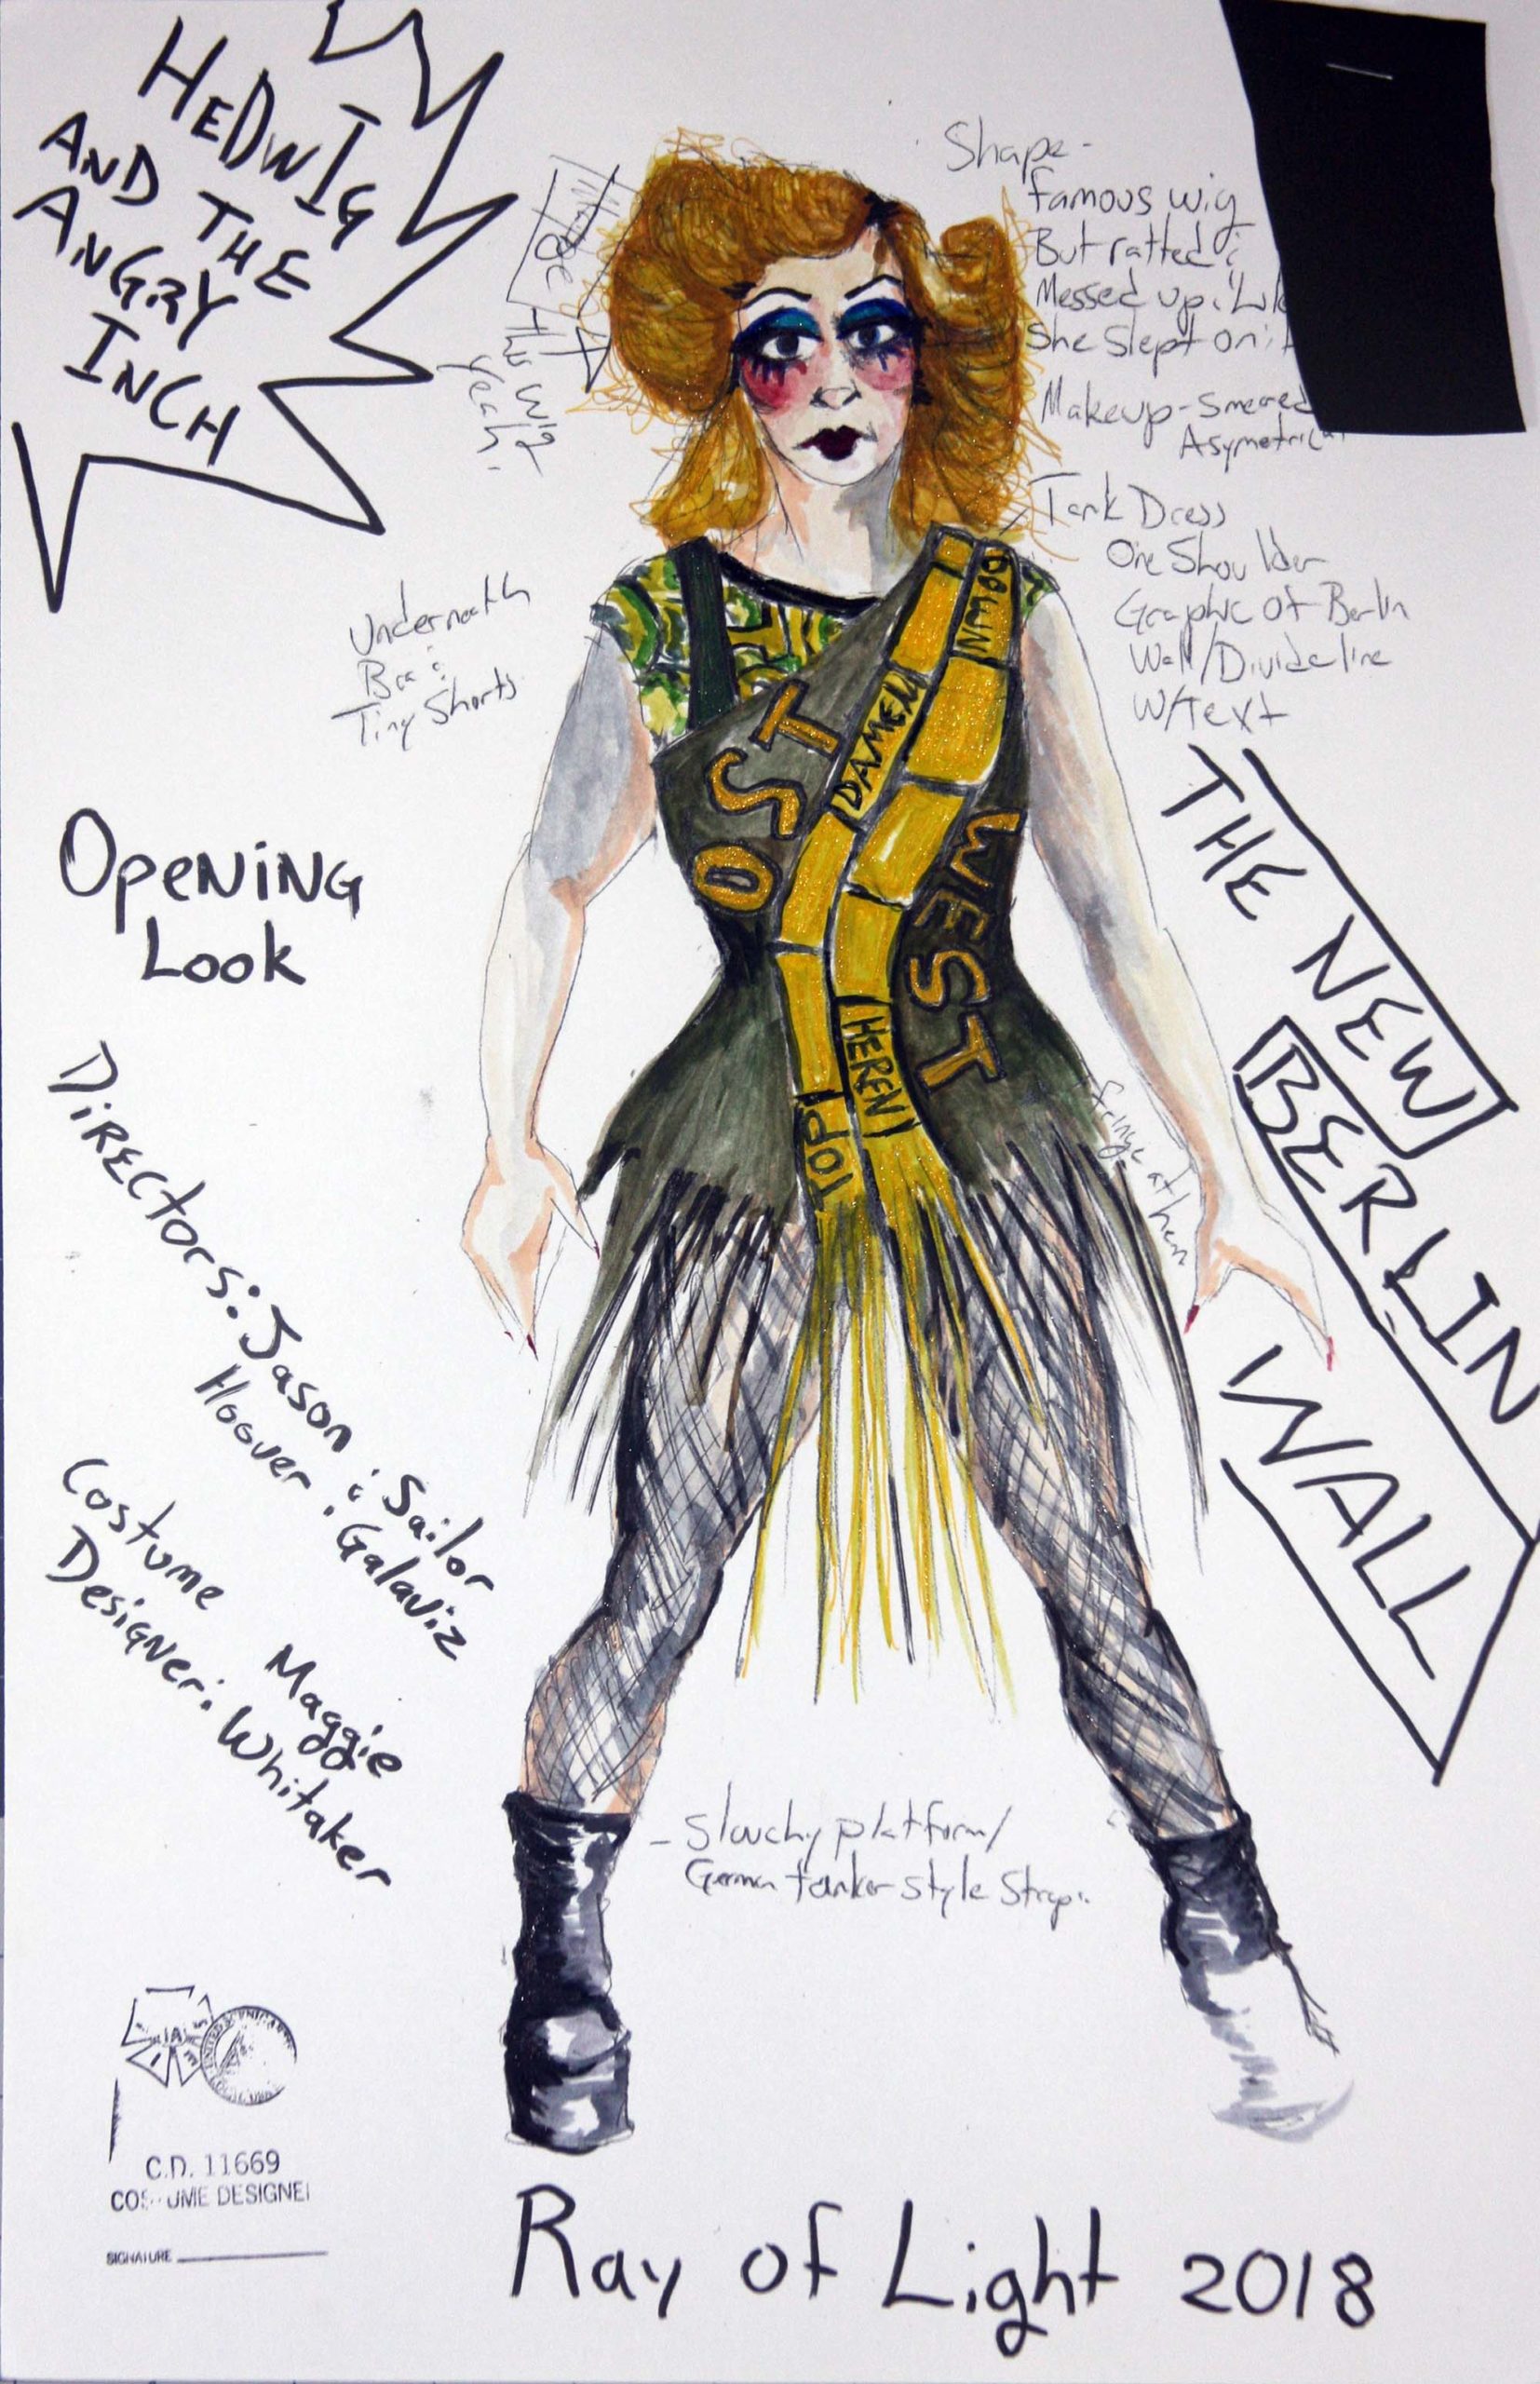 HEDWIG
AND THE
ANGRY
INCH
Shape-
famous wig
But ratted &
Messed up. Like
She Slept on it
Makeup-Smeared
Asymetrical
The Wig
Yeah.
Tank Dress
One Shoulder
Graphic of Berlin
Wall/Divide line
W/Text
Underneath
Bra &
Tiny Shorts
OPENING
Look
OST
WEST
DAMEN
HEREN
THE NEW
BERLIN
WALL
fringe at hem
Directors: Jason & Sailor
Hoover & Galaviz
Costume Maggie
Designer: Whitaker
- Slouchy platform/
German tanker style Straps
C.D. 11669
COSTUME DESIGNER
SIGNATURE
Ray of Light 2018